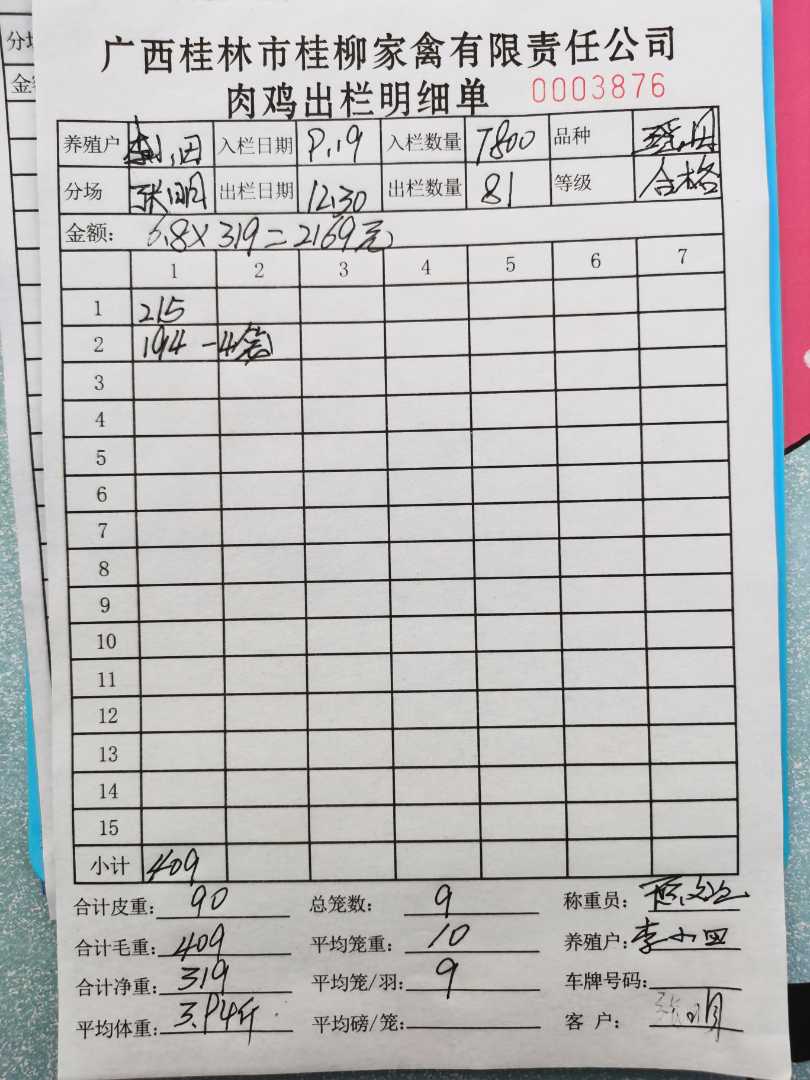 分场
金
广西桂林市桂柳家禽有限责任公司
肉鸡出栏明细单 0003876
养殖户 李小田 入栏日期 8.19 入栏数量 7800 品种
分场 张明 出栏日期 12.30 出栏数量 81 等级 合格
金额: 6.8×319=2169元
1 2 3 4 5 6 7
1 215
2 194 -4笼
3
4
5
6
7
8
9
10
11
12
13
14
15
小计 409
合计皮重: 90 总笼数: 9 称重员:
合计毛重: 409 平均笼重: 10 养殖户: 李小田
合计净重: 319 平均笼/羽: 9 车牌号码:
平均体重: 3.94斤 平均磅/笼: 客 户: 张明